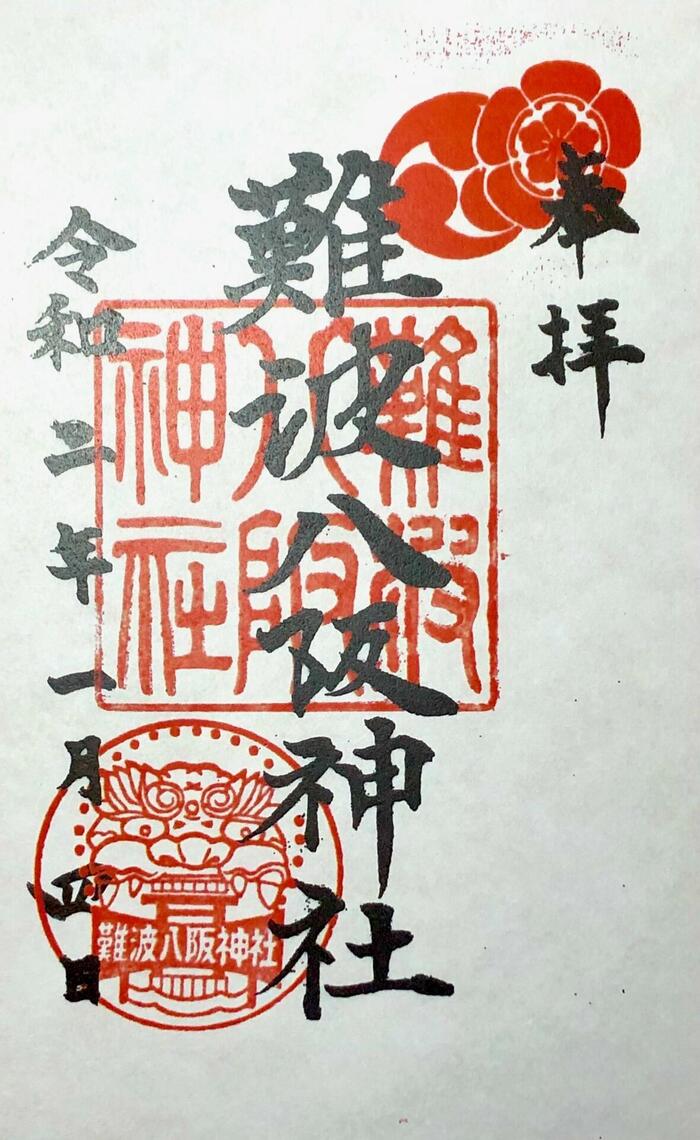 奉拝
難波八阪神社
令和二年一月四日
難波
八阪
神社
難波八阪神社